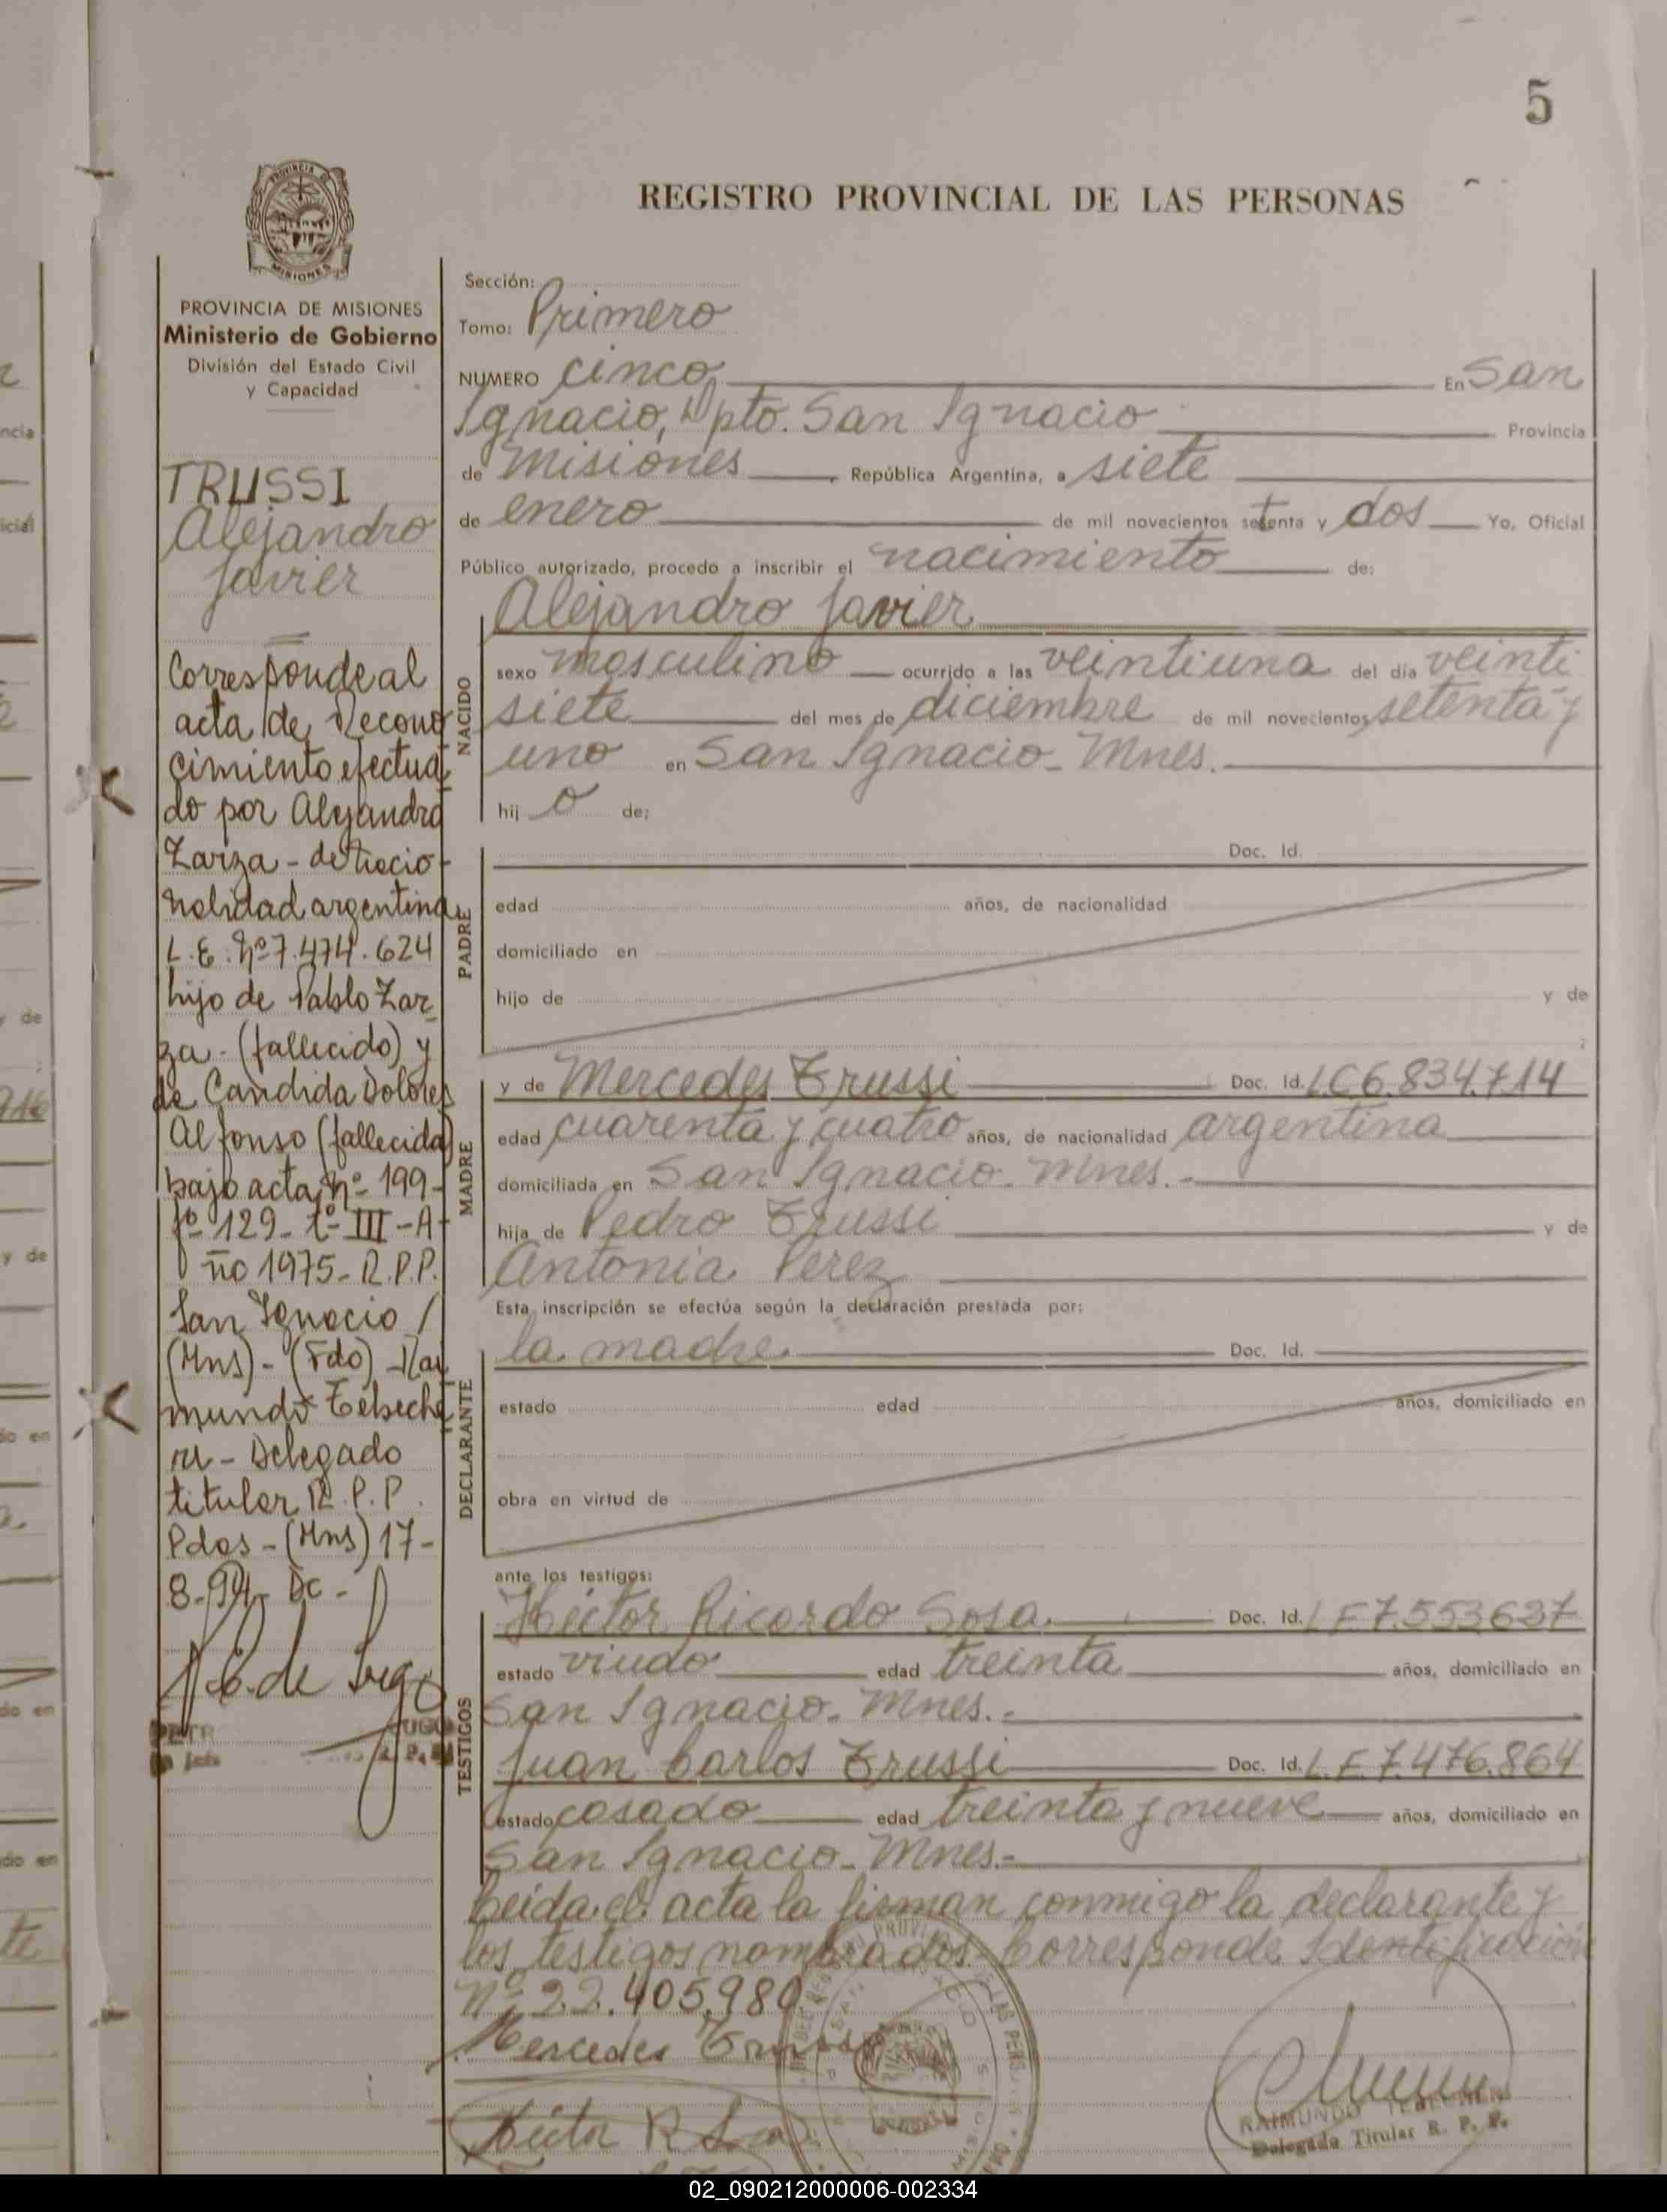 5
REGISTRO PROVINCIAL DE LAS PERSONAS
PROVINCIA DE MISIONES
Ministerio de Gobierno
División del Estado Civil
y Capacidad
TRUSSI
Alejandro
Javier
Corresponde al
acta de Recono
cimiento efectua
do por Alejandro
Zarza - de nacio-
nalidad argentina
L.E. Nº 7.474.624
hijo de Pablo Zar
za - (fallecido) y
de Candida Dolores
Alfonso (fallecida)
bajo acta Nº 199-
fº 129 - tº III - A-
ño 1975 - R.P.P.
San Ignacio /
(Mns) - (Fdo) - Rai
mundo Tebeche
ru - Delegado
titular R.P.P.
Pdas - (Mns) 17-
8-94- Dc -
Sección:
Tomo: Primero
NUMERO cinco En San
Ignacio, Dpto. San Ignacio Provincia
de Misiones República Argentina, a siete
de enero de mil novecientos setenta y dos Yo, Oficial
Público autorizado, procedo a inscribir el nacimiento de:
Alejandro Javier
NACIDO
sexo masculino ocurrido a las veintiuna del día veinti
siete del mes de diciembre de mil novecientos setenta y
uno en San Ignacio - Mnes.
hij o de:
PADRE
Doc. Id.
edad años, de nacionalidad
domiciliado en
hijo de y de
MADRE
y de Mercedes Trussi Doc. Id. L.C 6.834.714
edad cuarenta y cuatro años, de nacionalidad argentina
domiciliada en San Ignacio - Mnes. -
hija de Pedro Trussi y de
Antonia Perez
Esta inscripción se efectúa según la declaración prestada por:
DECLARANTE
la madre. Doc. Id.
estado edad años, domiciliado en
obra en virtud de
ante los testigos:
TESTIGOS
Héctor Ricardo Sosa. Doc. Id. L E 7.553637
estado viudo edad treinta años, domiciliado en
San Ignacio - Mnes. -
Juan Carlos Trussi Doc. Id. L.E. 7.476.864
estado casado edad treinta y nueve años, domiciliado en
San Ignacio - Mnes. -
Leida el acta la firman conmigo la declarante y
los testigos nombrados. Corresponde Identificación
Nº 22.405.980
Mercedes Trussi
Héctor R Sosa
RAIMUNDO TEBECHERI
Delegado Titular R. P. P.
02_090212000006-002334